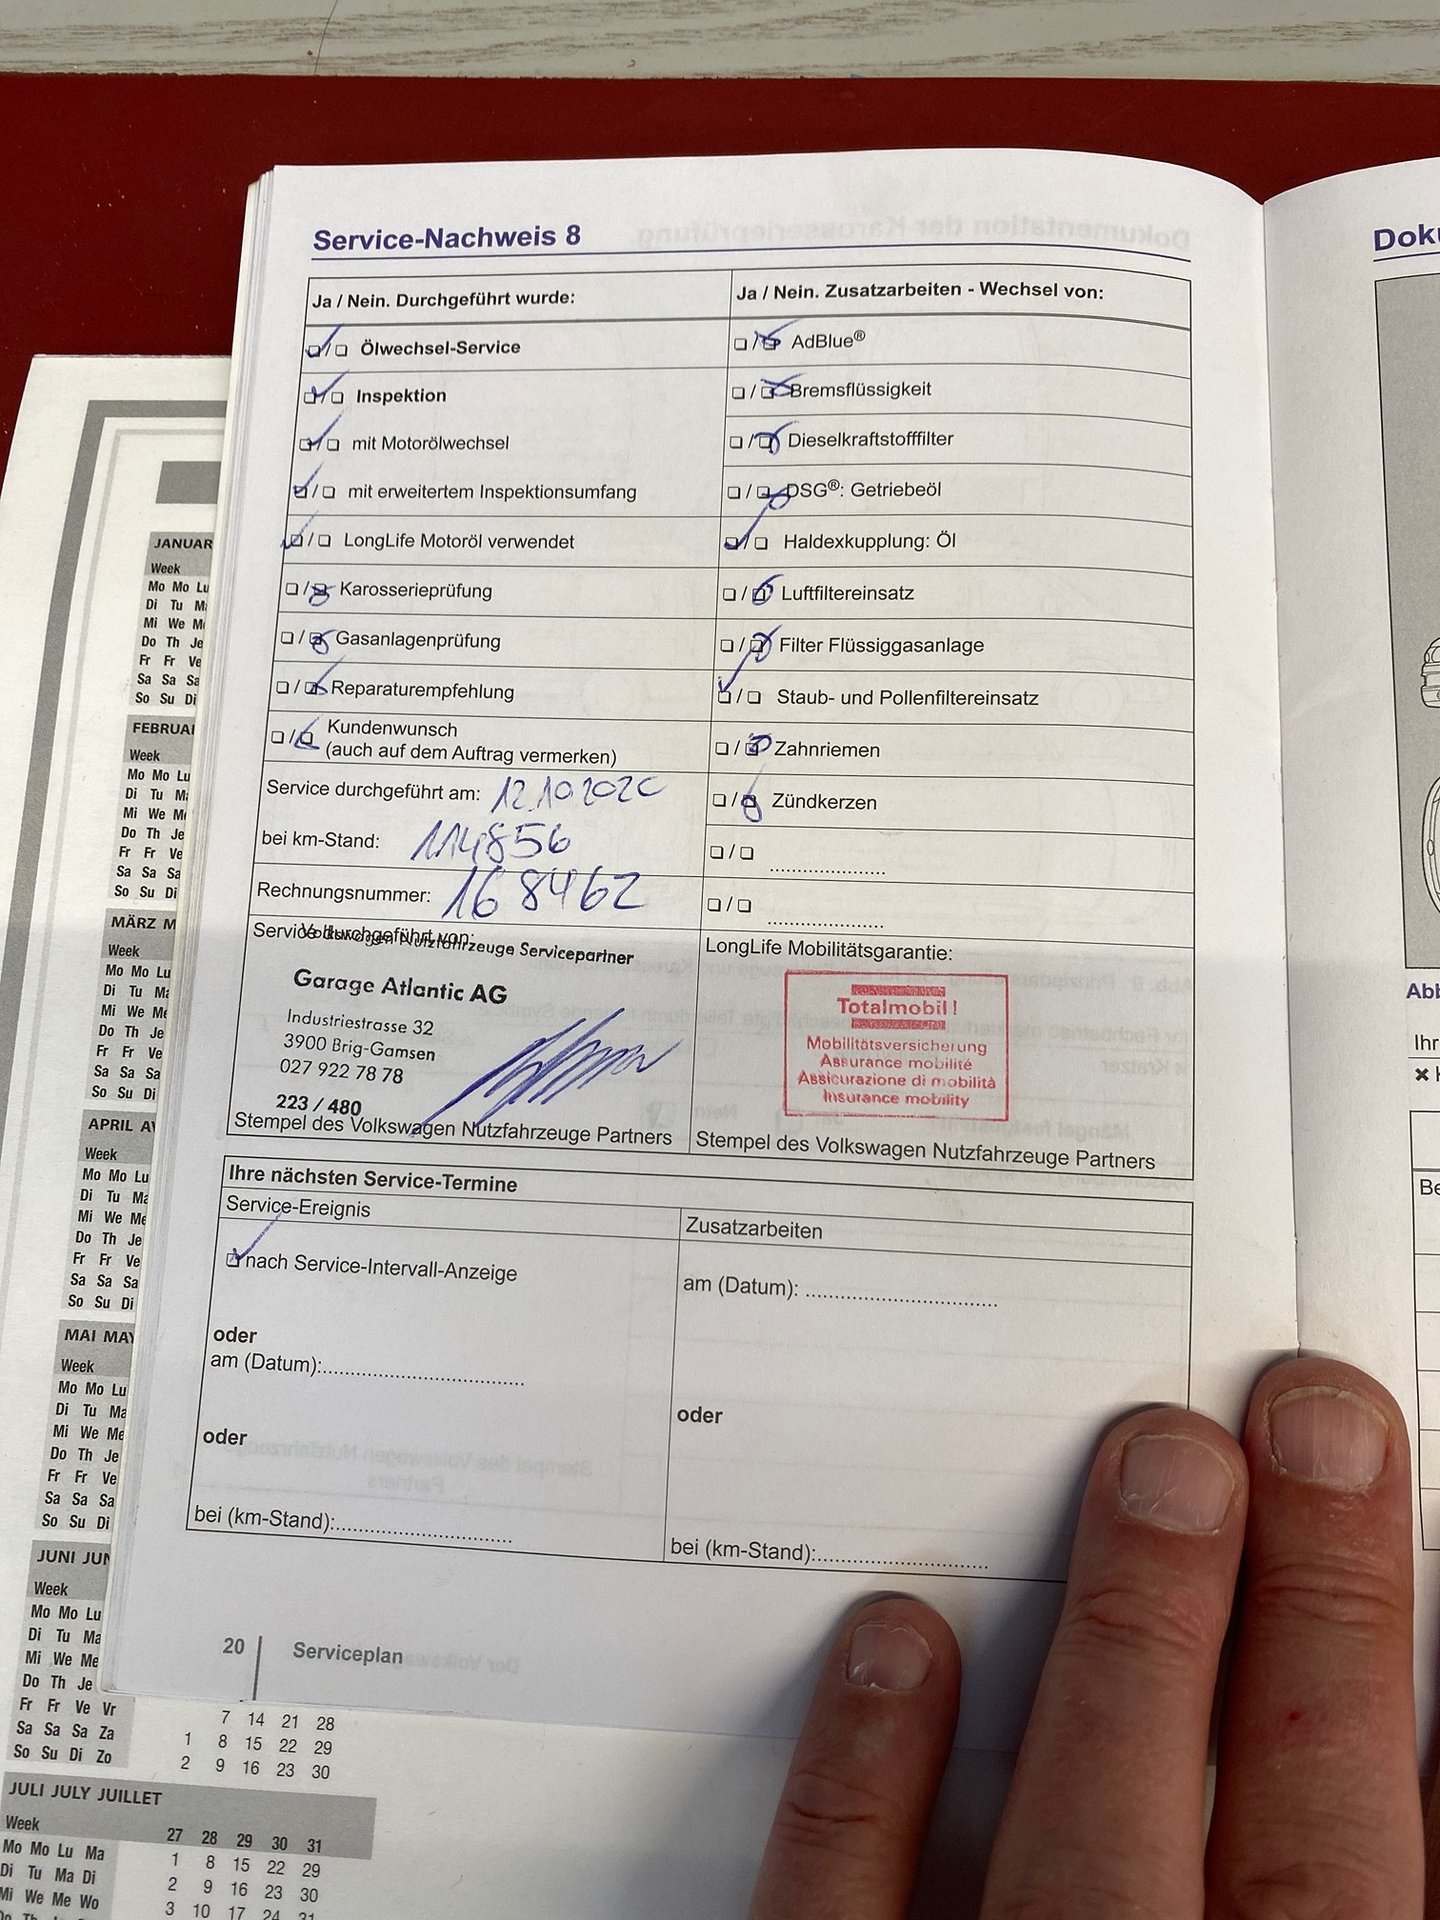 Service-Nachweis 8
Ja / Nein. Durchgeführt wurde:
Ja / Nein. Zusatzarbeiten - Wechsel von:
☑/☐ Ölwechsel-Service
☐/☑ AdBlue®
☑/☐ Inspektion
☐/☑ Bremsflüssigkeit
☑/☐ mit Motorölwechsel
☐/☑ Dieselkraftstofffilter
☑/☐ mit erweitertem Inspektionsumfang
☐/☑ DSG®: Getriebeöl
☑/☐ LongLife Motoröl verwendet
☑/☐ Haldexkupplung: Öl
☐/☑ Karosserieprüfung
☐/☑ Luftfiltereinsatz
☐/☑ Gasanlagenprüfung
☐/☑ Filter Flüssiggasanlage
☐/☑ Reparaturempfehlung
☑/☐ Staub- und Pollenfiltereinsatz
☐/☑ Kundenwunsch
(auch auf dem Auftrag vermerken)
☐/☑ Zahnriemen
Service durchgeführt am: 12.10.2020
☐/☑ Zündkerzen
bei km-Stand: 114856
☐/☐ ....................
Rechnungsnummer: 168462
☐/☐ ....................
Service durchgeführt von:
Volkswagen Nutzfahrzeuge Servicepartner
Garage Atlantic AG
Industriestrasse 32
3900 Brig-Gamsen
027 922 78 78
223 / 480
Stempel des Volkswagen Nutzfahrzeuge Partners
LongLife Mobilitätsgarantie:
Totalmobil!
Mobilitätsversicherung
Assurance mobilité
Assicurazione di mobilità
Insurance mobility
Stempel des Volkswagen Nutzfahrzeuge Partners
Ihre nächsten Service-Termine
Service-Ereignis
Zusatzarbeiten
☑ nach Service-Intervall-Anzeige
am (Datum): .................................
oder
am (Datum):...................................
oder
oder
bei (km-Stand):...............................
bei (km-Stand):..............................
20 Serviceplan
Doku
Abb
Ihr
Be
JANUAR
Week
Mo Mo Lu
Di Tu Ma
Mi We Me
Do Th Je
Fr Fr Ve
Sa Sa Sa
So Su Di
FEBRUAR
Week
Mo Mo Lu
Di Tu Ma
Mi We Me
Do Th Je
Fr Fr Ve
Sa Sa Sa
So Su Di
MÄRZ M
Week
Mo Mo Lu
Di Tu Ma
Mi We Me
Do Th Je
Fr Fr Ve
Sa Sa Sa
So Su Di
APRIL AV
Week
Mo Mo Lu
Di Tu Ma
Mi We Me
Do Th Je
Fr Fr Ve
Sa Sa Sa
So Su Di
MAI MAY
Week
Mo Mo Lu
Di Tu Ma
Mi We Me
Do Th Je
Fr Fr Ve
Sa Sa Sa
So Su Di
JUNI JUN
Week
Mo Mo Lu
Di Tu Ma
Mi We Me
Do Th Je
Fr Fr Ve Vr 7 14 21 28
Sa Sa Sa Za 1 8 15 22 29
So Su Di Zo 2 9 16 23 30
JULI JULY JUILLET
Week 27 28 29 30 31
Mo Mo Lu Ma 1 8 15 22 29
Di Tu Ma Di 2 9 16 23 30
Mi We Me Wo 3 10 17 24 31